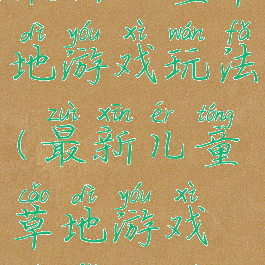 dì yóu xì wán fǎ
地游戏玩法
zuì xīn ér tóng
(最新儿童
cǎo dì yóu xì
草地游戏